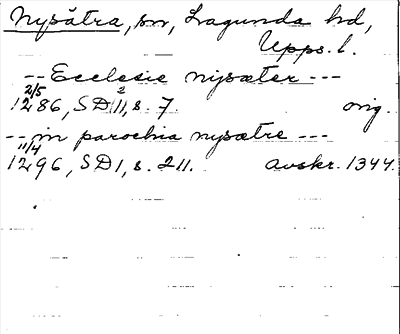 Nysätra, sn, Lagunda hd,
Upps. l.
-- Ecclesie nijsæter ---
2/5 1286, SD II, 2 s. 7. orig.
-- in parochia nysætre ---
11/4 1296, SD 1, s. 211. avskr. 1344.